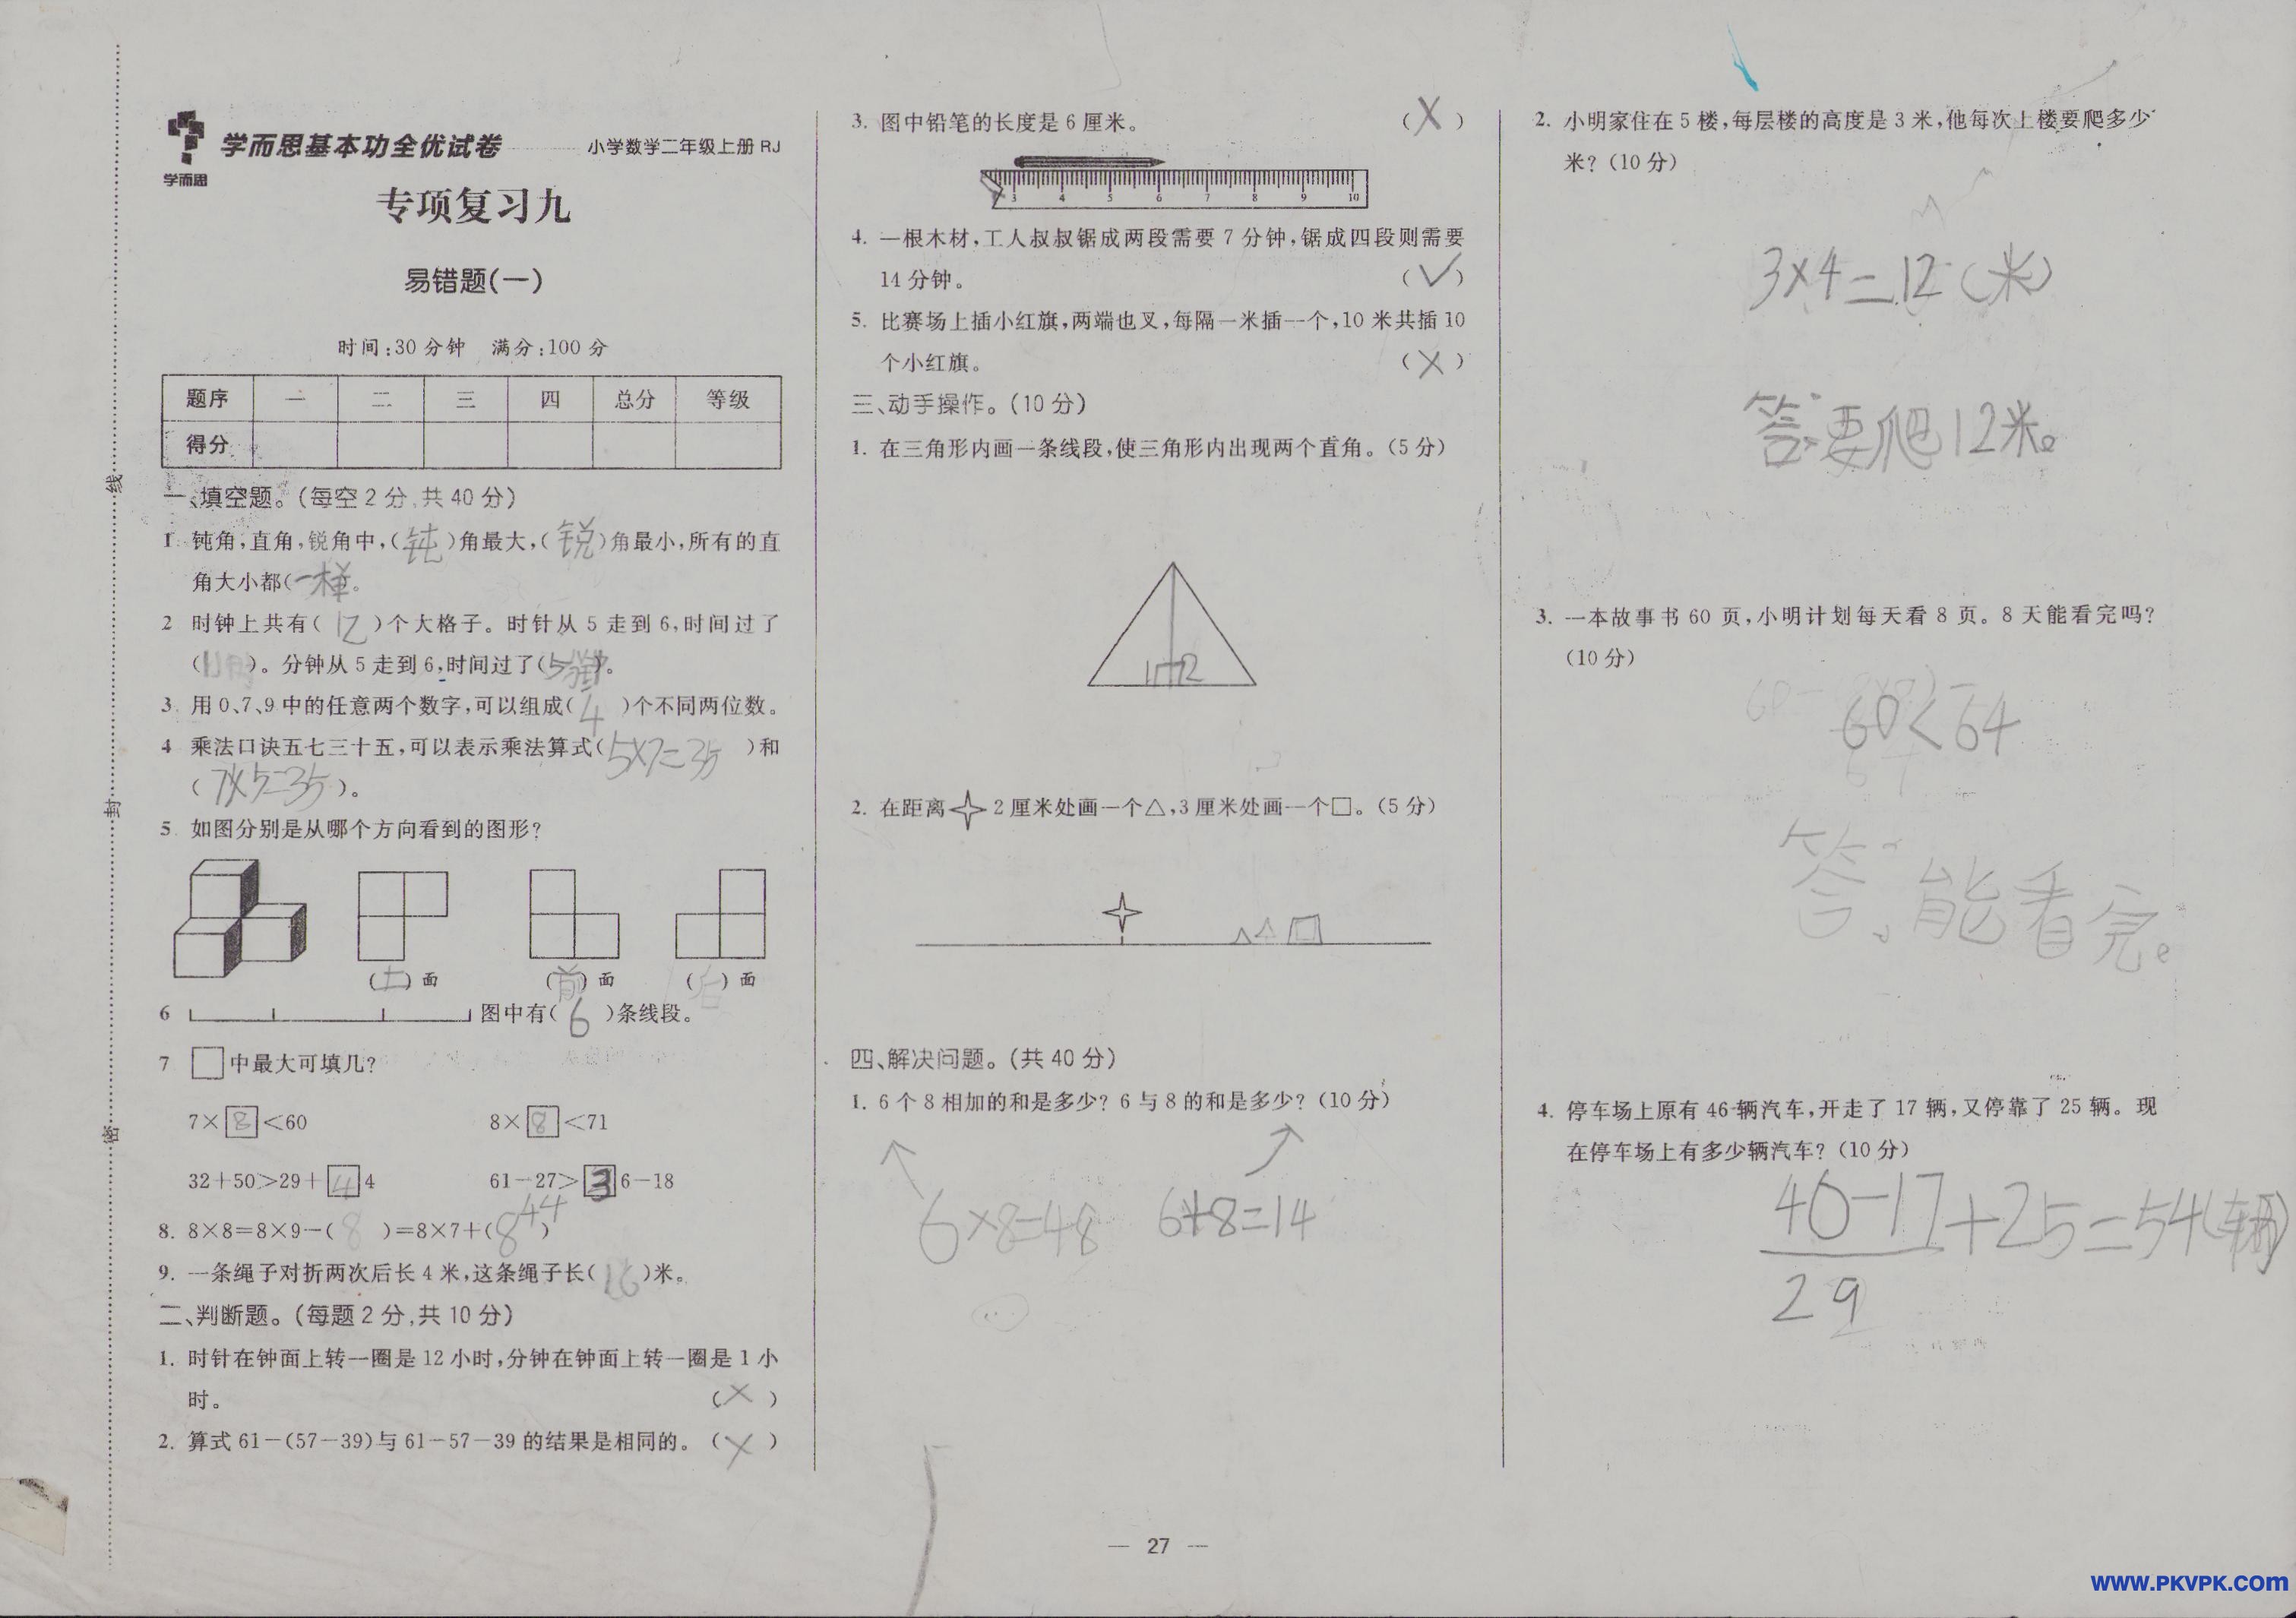 学而思
学而思基本功全优试卷 小学数学二年级上册 RJ
专项复习九
易错题(一)
时间:30 分钟 满分:100 分
题序 一 二 三 四 总分 等级
得分
线
封
密
一、填空题。(每空 2 分,共 40 分)
1 钝角,直角,锐角中,(钝)角最大,(锐)角最小,所有的直
角大小都(一样。
2 时钟上共有(12)个大格子。时针从 5 走到 6,时间过了
( )。分钟从 5 走到 6,时间过了( )。
3. 用 0、7、9 中的任意两个数字,可以组成(4)个不同两位数。
4 乘法口诀五七三十五,可以表示乘法算式(5×7=35)和
(7×5=35)。
5. 如图分别是从哪个方向看到的图形?
(上)面 (前)面 (后)面
6 图中有(6)条线段。
7 □中最大可填几?
7×8<60 8×8<71
32+50>29+44 61-27>36-18
44
8. 8×8=8×9-(8)=8×7+(8)
9. 一条绳子对折两次后长 4 米,这条绳子长(16)米。
二、判断题。(每题 2 分,共 10 分)
1. 时针在钟面上转一圈是 12 小时,分钟在钟面上转一圈是 1 小
时。 (×)
2. 算式 61-(57-39)与 61-57-39 的结果是相同的。(×)
3. 图中铅笔的长度是 6 厘米。 (×)
3 4 5 6 7 8 9 10
4. 一根木材,工人叔叔锯成两段需要 7 分钟,锯成四段则需要
14 分钟。 (✓)
5. 比赛场上插小红旗,两端也叉,每隔一米插一个,10 米共插 10
个小红旗。 (×)
三、动手操作。(10 分)
1. 在三角形内画一条线段,使三角形内出现两个直角。(5 分)
1 2
2. 在距离 2 厘米处画一个△,3 厘米处画一个□。(5 分)
四、解决问题。(共 40 分)
1. 6 个 8 相加的和是多少? 6 与 8 的和是多少?(10 分)
6×8=48 6+8=14
2. 小明家住在 5 楼,每层楼的高度是 3 米,他每次上楼要爬多少
米?(10 分)
3×4=12(米)
答:要爬12米。
3. 一本故事书 60 页,小明计划每天看 8 页。8 天能看完吗?
(10 分)
60<64
答:能看完。
4. 停车场上原有 46 辆汽车,开走了 17 辆,又停靠了 25 辆。现
在停车场上有多少辆汽车?(10 分)
46-17+25=54(辆)
29
— 27 —
www.PKVPK.com